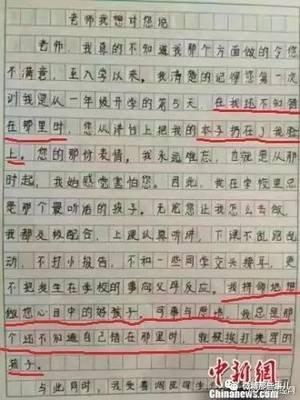 老师我想对您说
老师,我真的不知道我那个方面做的令您
不满意,至入学以来。我清楚的记得您第一次
训我是从一年级开学的第5天,在我还不知错
在那里时,您从讲台上把我的本子扔在了我脸
上。您的那份表情。我永远难忘,也就是从那
时起,我始感觉害怕您。因此,我在学校里总
是那个最听话的孩子。无论您让我怎么去做,
我都及极配合,上课认真听讲,下课不乱跑
动,不打小报告,不和一些同学交头接耳,更
不把发生在学校的事向父母反应。我拼命地想
做您心目中的好孩子,可事与愿违,我总是那
个还不知道自己错在那里时,就被挨打挨骂的
孩子。
与此同时,我受
中新网
微博那些事儿